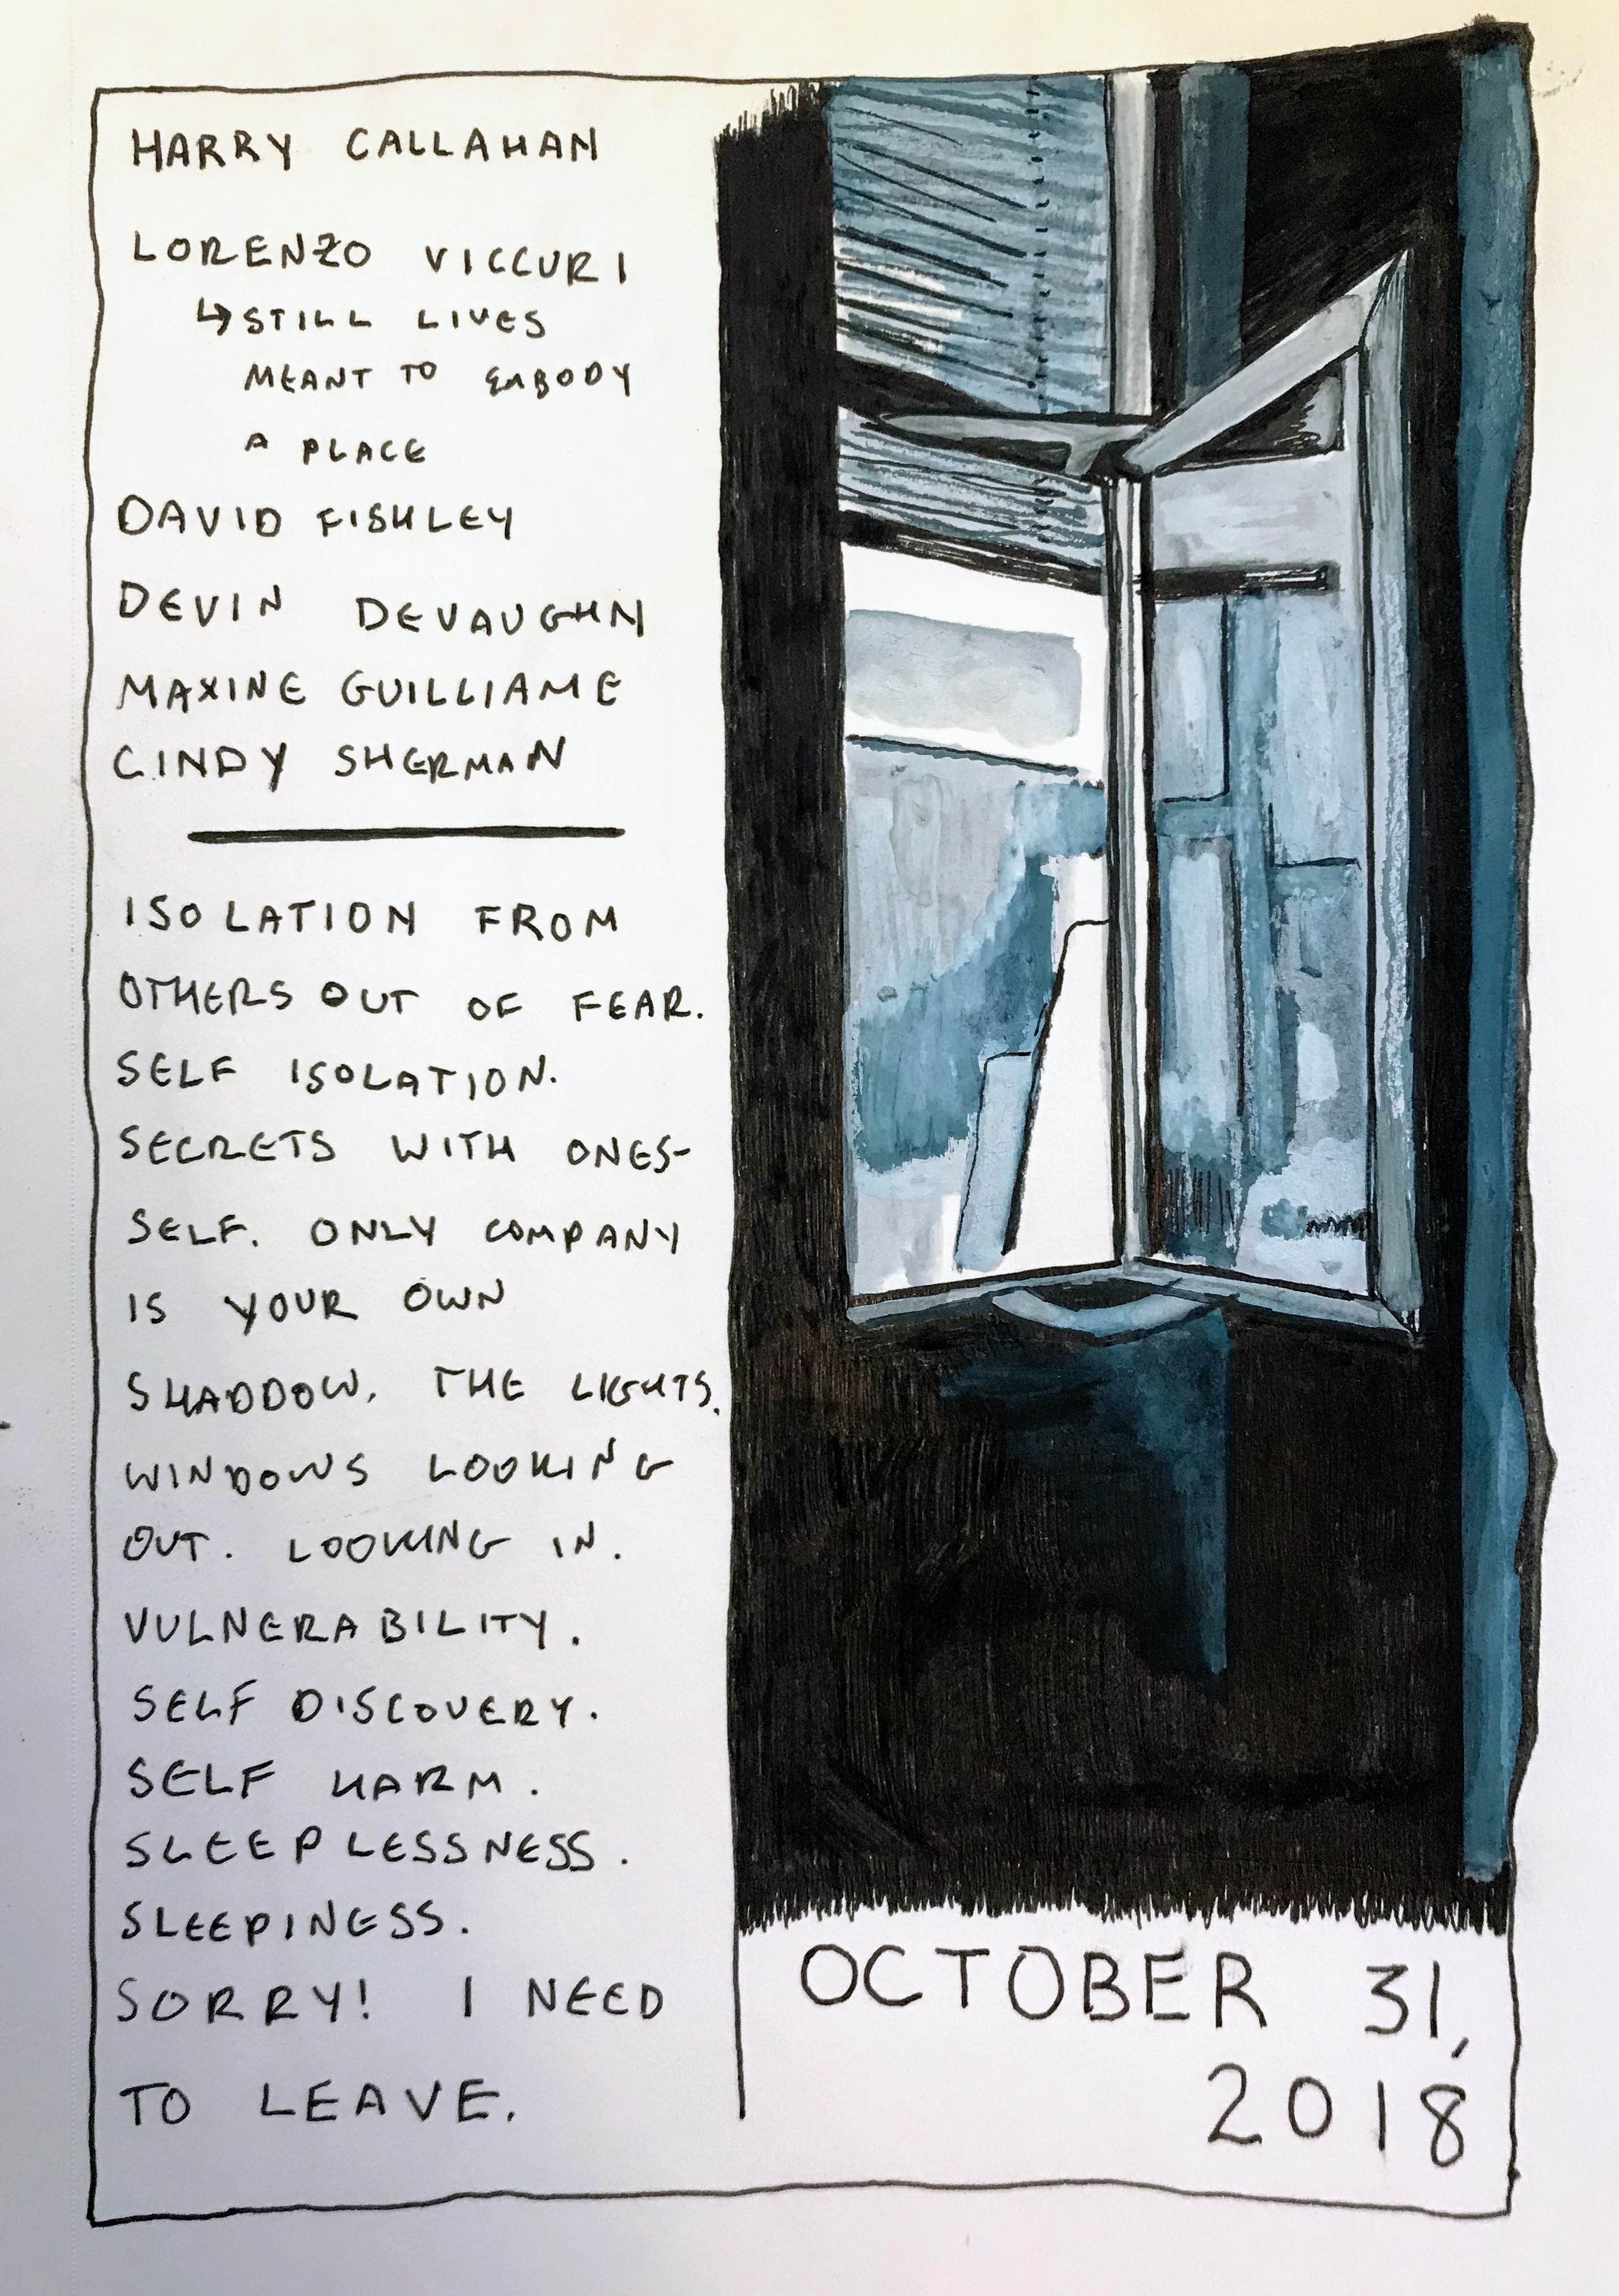 HARRY CALLAHAN
LORENZO VICCURI
↳ STILL LIVES
MEANT TO EMBODY
A PLACE
DAVID FISHLEY
DEVIN DEVAUGHN
MAXINE GUILLIAME
CINDY SHERMAN
ISOLATION FROM
OTHERS OUT OF FEAR.
SELF ISOLATION.
SECRETS WITH ONES-
SELF. ONLY COMPANY
IS YOUR OWN
SHADDOW. THE LIGHTS.
WINDOWS LOOKING
OUT. LOOKING IN.
VULNERABILITY.
SELF DISCOVERY.
SELF HARM.
SLEEPLESSNESS.
SLEEPINESS.
SORRY! I NEED
TO LEAVE.
OCTOBER 31,
2018